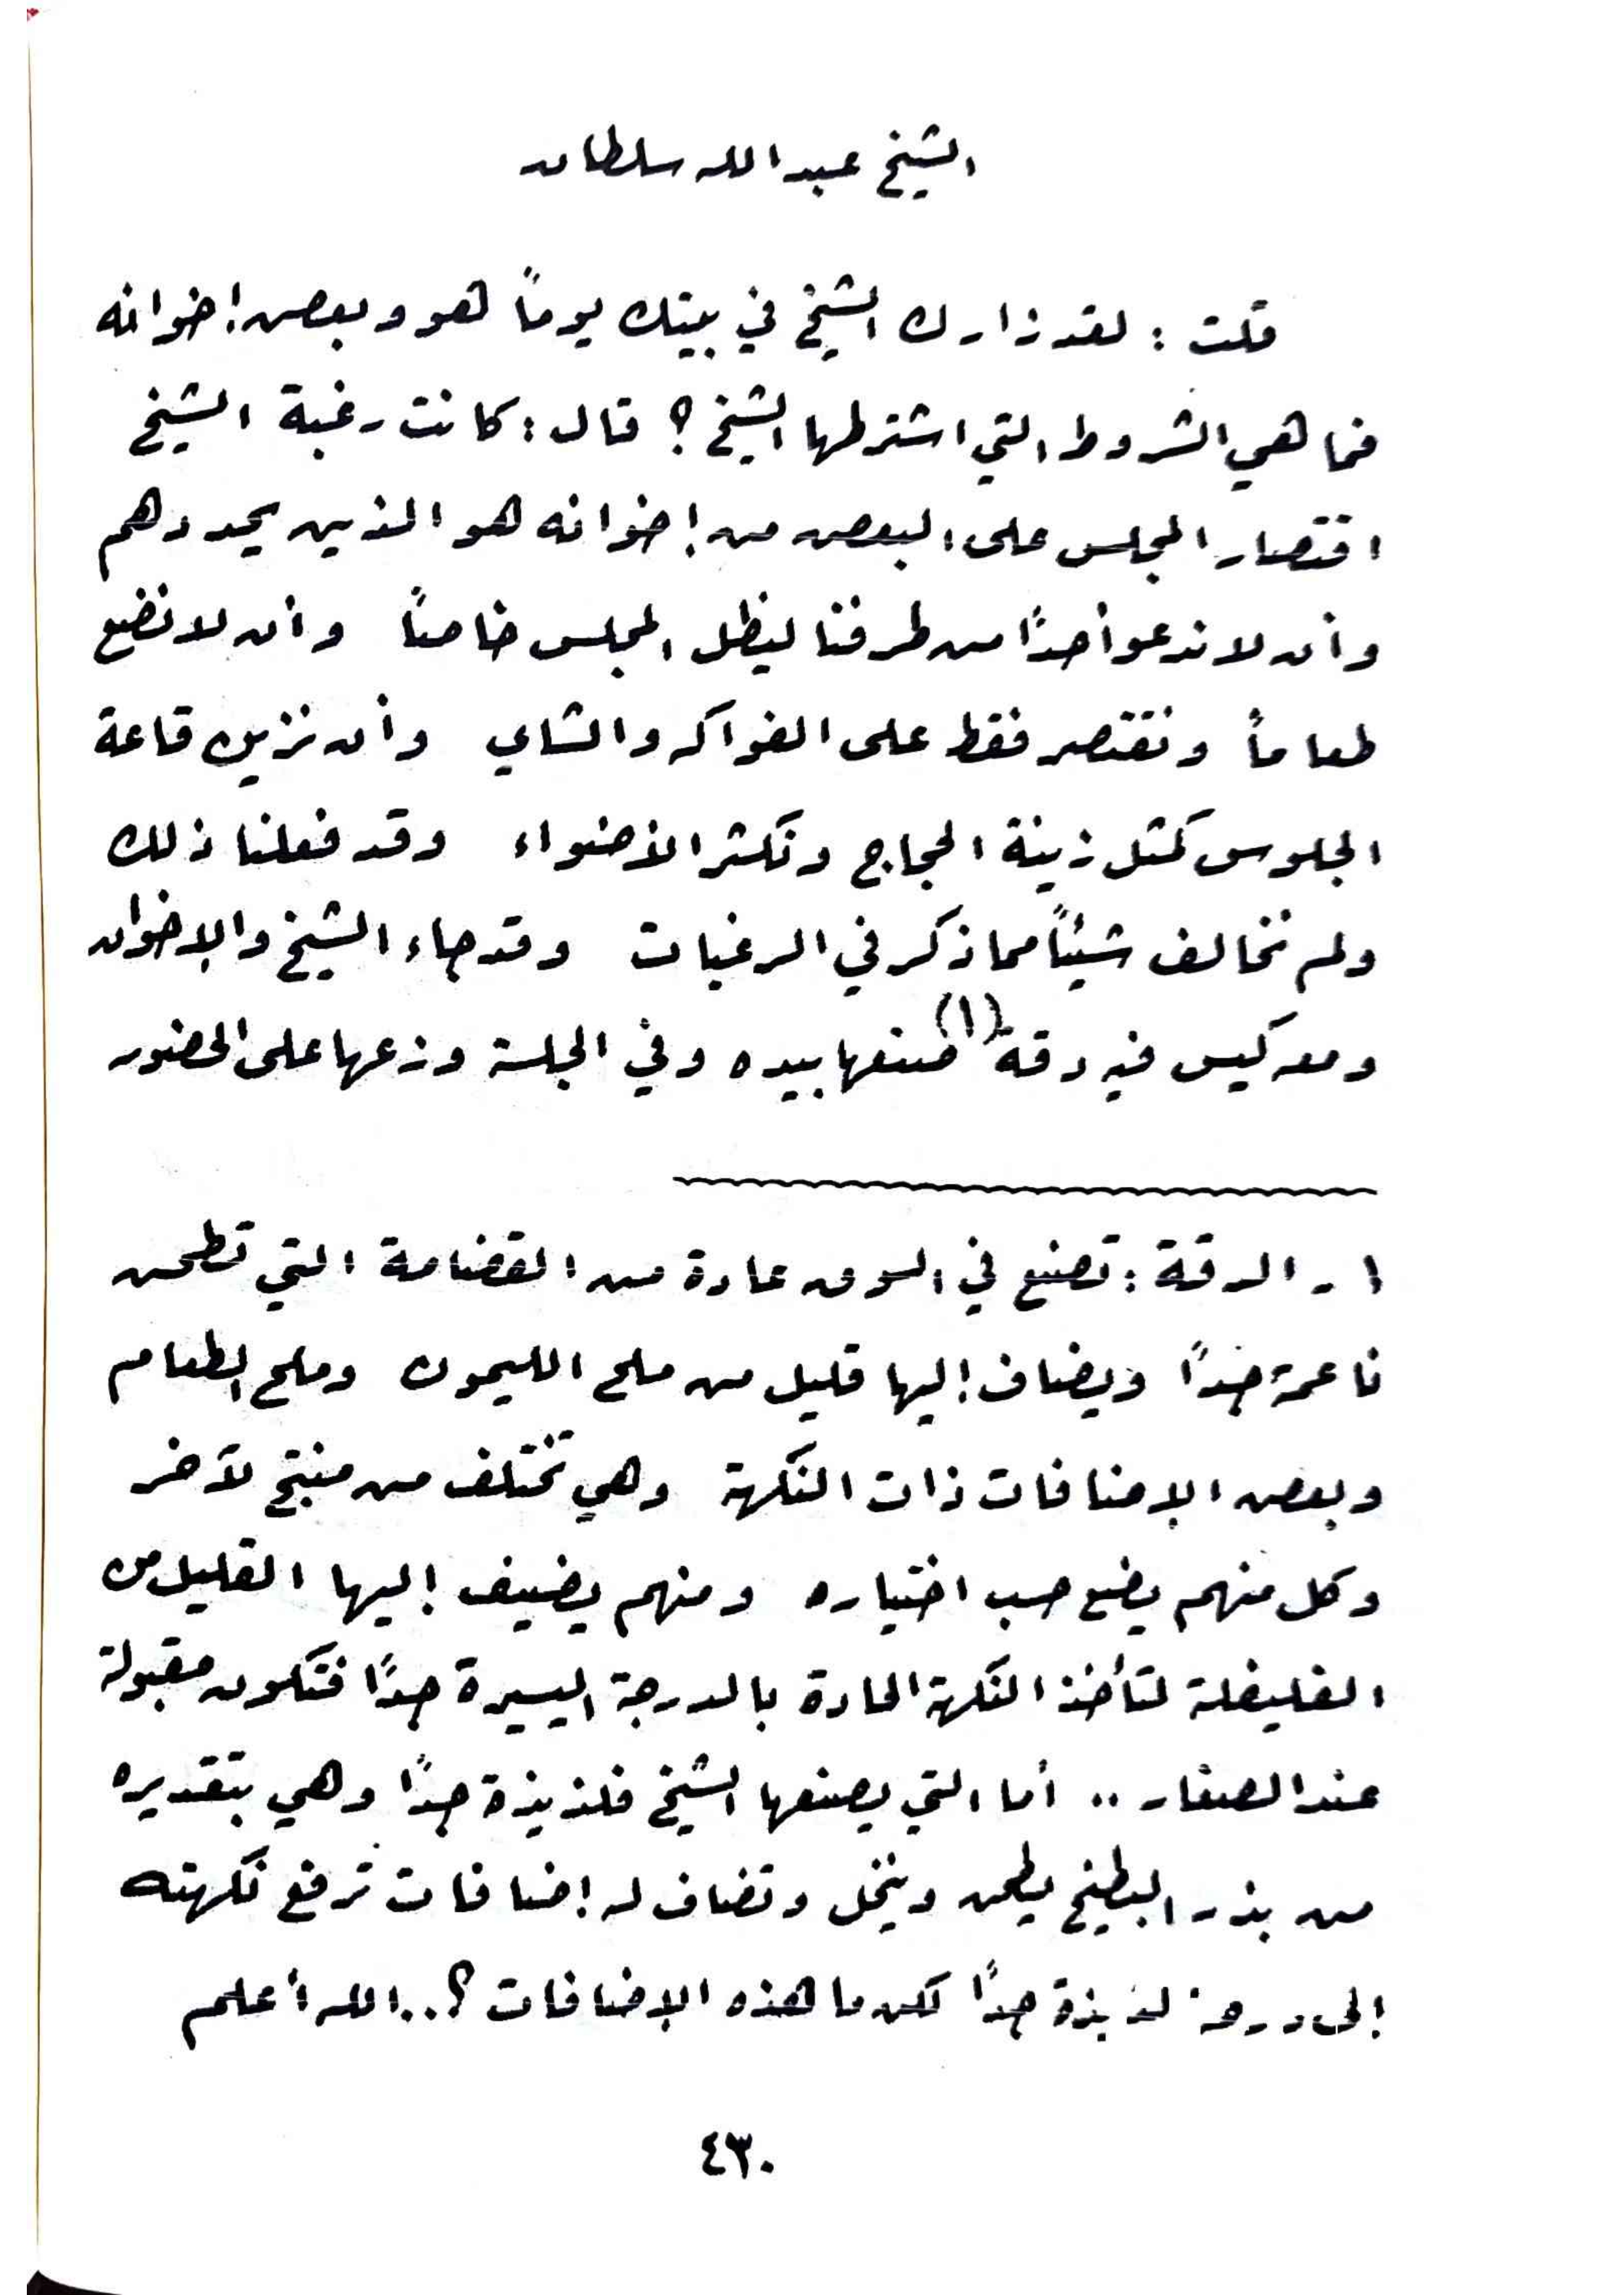 الشيخ عبد الله سلطان
قلت : لقد زارك الشيخ في بيتك يوماً هو وبعض إخوانه
فما هي الشروط التي اشترطها الشيخ ؟ قال : كانت رغبة الشيخ
اقتصار المجلس على البعض من إخوانه هو الذين يحددهم
وأن لا ندعو أحداً من طرفنا ليظل المجلس خاصاً وأن لا نضع
طعاماً ونقتصر فقط على الفواكه والشاي وأن نزين قاعة
الجلوس كمثل زينة الحجاج ونكثر الأضواء وقد فعلنا ذلك
ولم نخالف شيئاً مما ذكر في الرغبات وقد جاء الشيخ والإخوان
ومعه كيس فيه دقة (١) صنعها بيده وفي الجلسة وزعها على الحضور
١ - الدقة : تصنع في السوق عادة من القضامة التي تطحن
ناعمة جداً ويضاف إليها قليل من ملح الليمون وملح الطعام
وبعض الإضافات ذات النكهة وهي تختلف من منتج لآخر
وكل منهم يضع حسب اختياره ومنهم يضيف إليها القليل من
الفليفلة لتأخذ النكهة الحادة بالدرجة اليسيرة جداً فتكون مقبولة
عند الصغار .. أما التي يصنعها الشيخ فلذيذة جداً وهي بتقديره
من بذر البطيخ يطحن وينخل وتضاف له إضافات ترفع نكهته
إلى درجة لذيذة جداً لكن ما هذه الإضافات ؟.. الله أعلم
٤٣٠